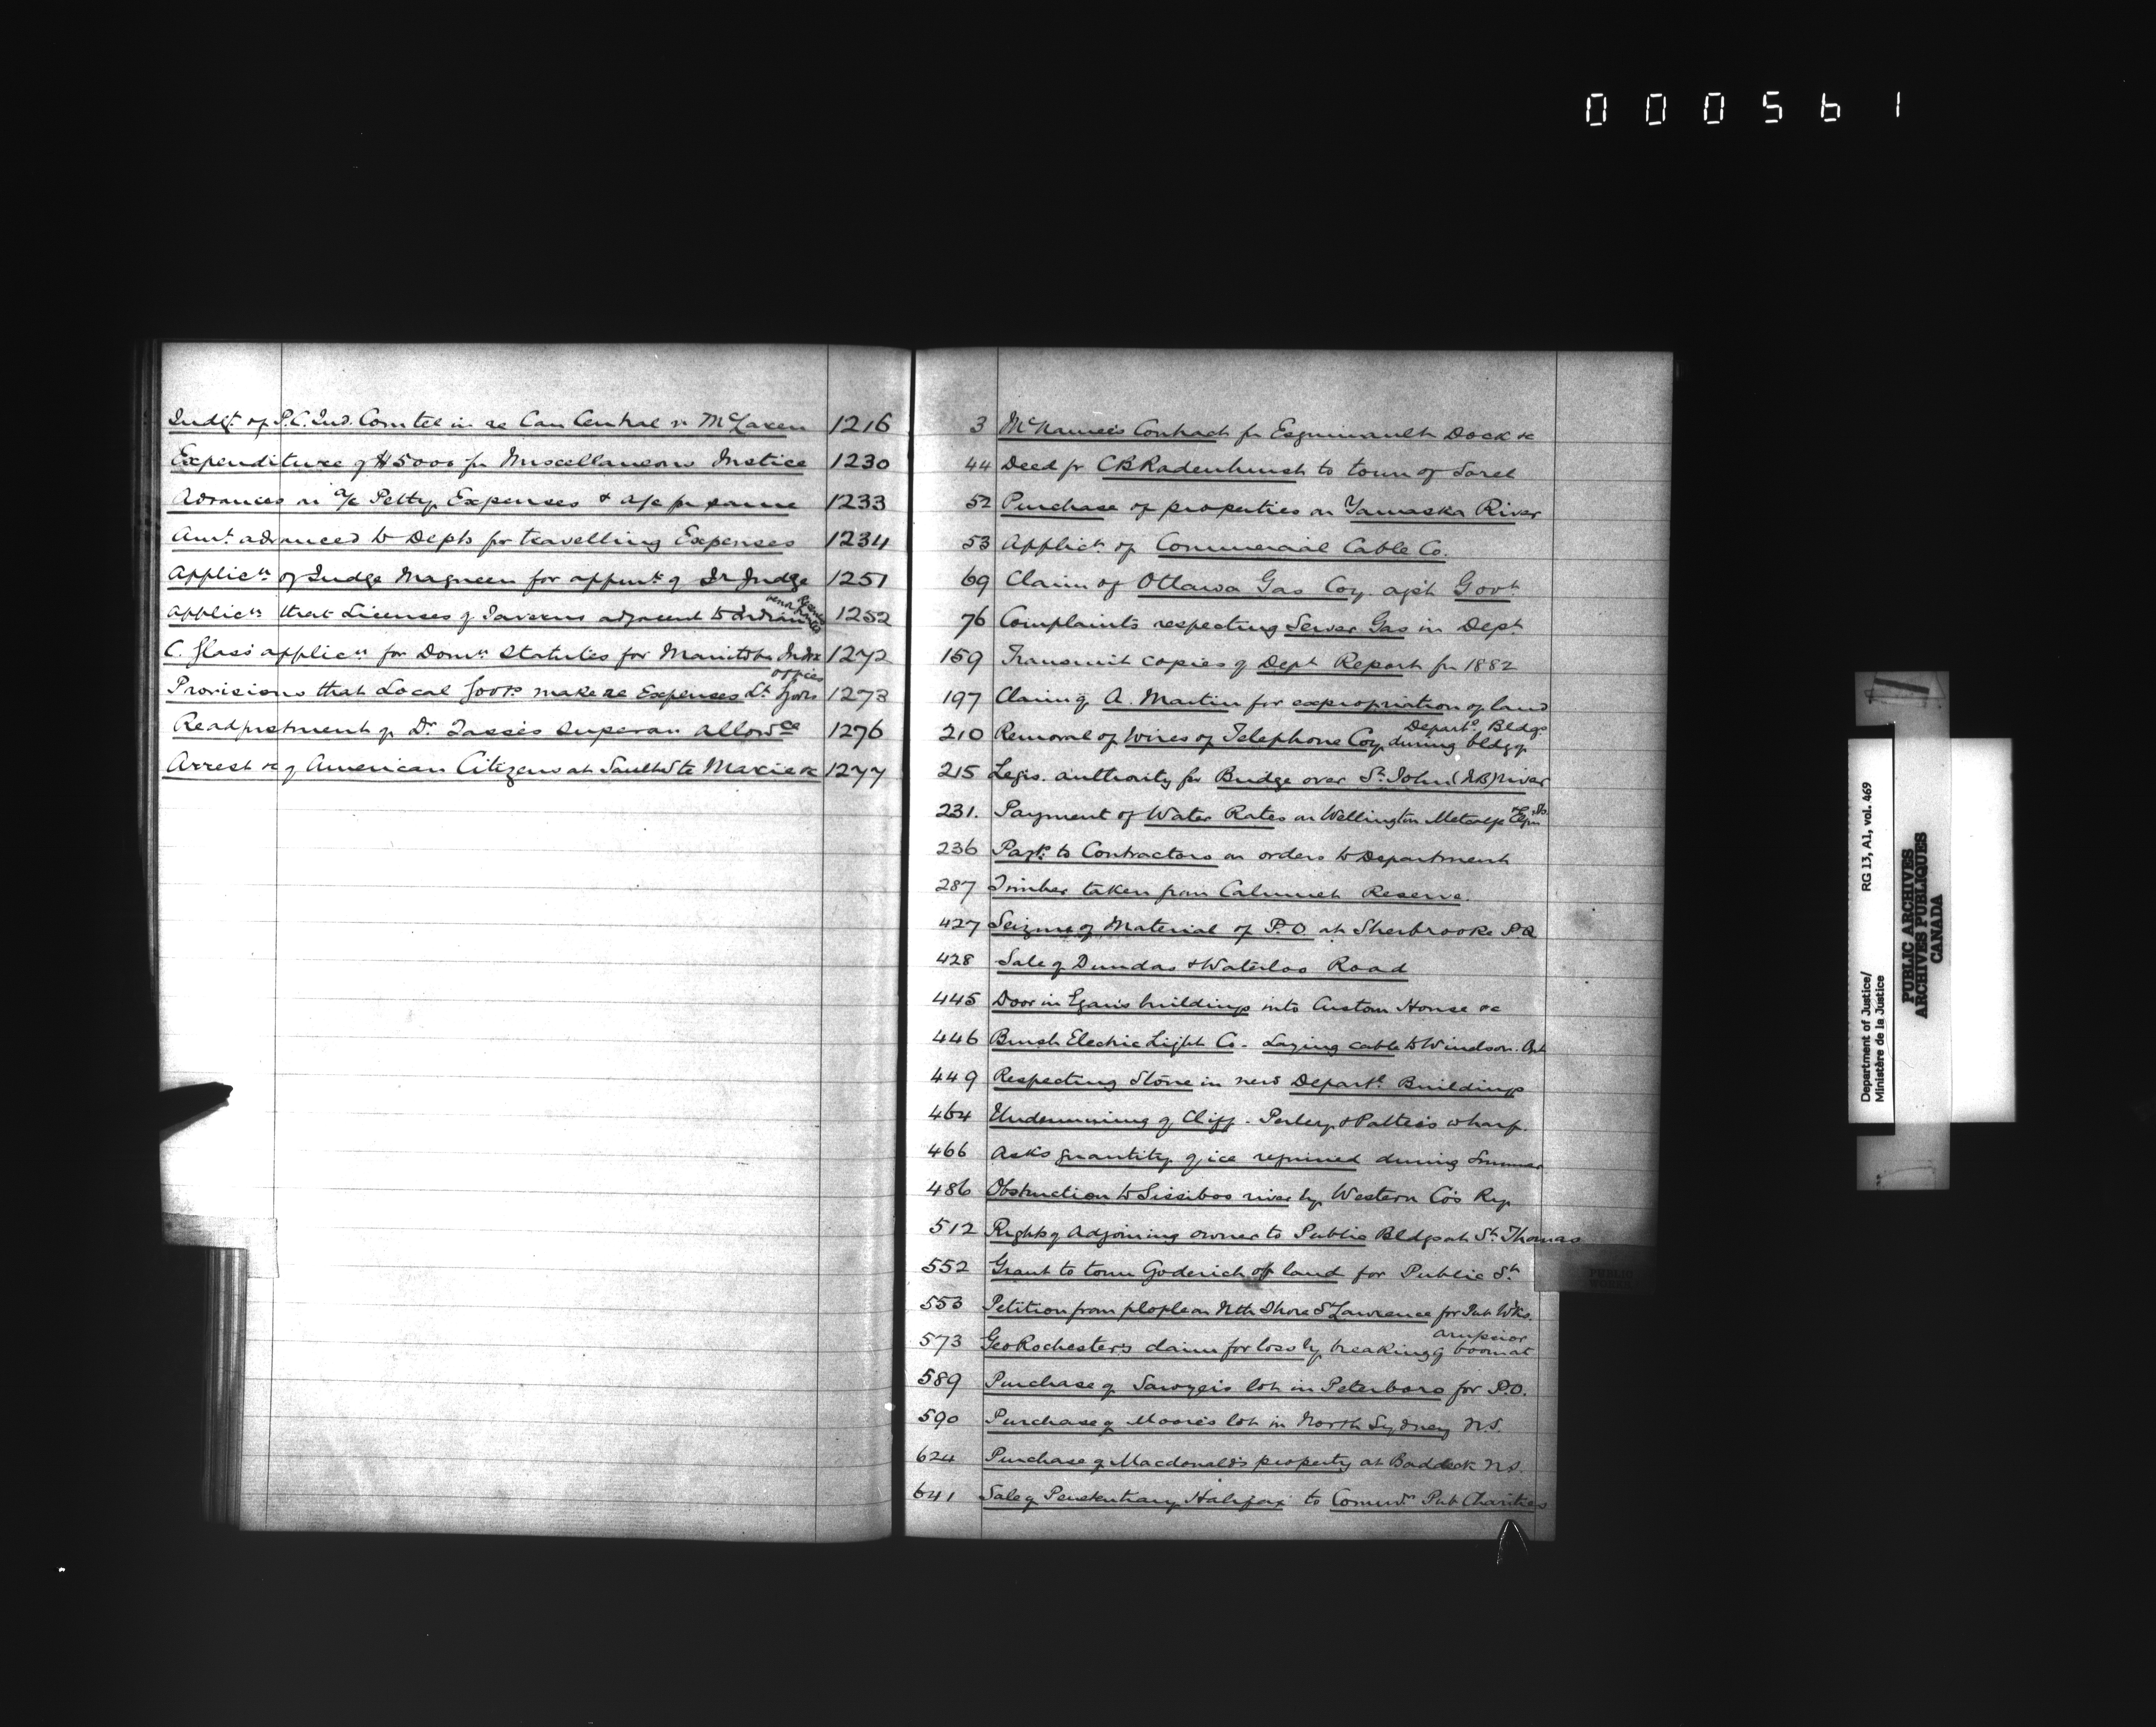 000561
Judgt. of P.C. Jud. Comtee in re Can Central v McLaren 1216
Expenditure of $5000 for Miscellaneous Justice 1230
Advances on a/c Petty Expenses & a/c for same 1233
Amt. advanced to Depts for travelling Expenses 1234
Applicn of Judge for appmt of Jr Judge 1251
Applicn that Licenses of Taverns adjacent to Indian Reserves 1252
C. Glass' applicn for Domn Statutes for Manitoba 1272
offices
Provisions that Local Govts make re Expenses Lt. Govrs 1273
Readjustment of Dr Tassé's superan allowce 1276
Arrest &c of American Citizens at Sault Ste Marie &c 1277
3 McNamee's Contract for Esquimault Dock &c
44 Deed fr C B Radenhurst to town of Sorel
52 Purchase of properties on Yamaska River
53 Applictn of Commercial Cable Co.
69 Claim of Ottawa Gas Coy. agst Govt
76 Complaints respecting Sewer Gas in Dept.
159 Transmit copies of Dept Report for 1882
197 Claim of A. Martin for expropriation of land
Departl Bldgs
210 Removal of Wires of Telephone Coy. during bldg of
215 Legis. authority for Bridge over St. John (NB) river
231. Payment of Water Rates on Wellington Metcalfe & Elgin Sts.
236 Payts to Contractors on orders to Department
287 Timber taken from Calumet Reserve.
427 Seizure of Material of P.O. at Sherbrooke P Q
428 Sale of Dundas & Waterloo Road
445 Door in Egan's buildings into Custom House &c
446 Brush Electric Light Co. Laying cable to Windsor. Ont
449 Respecting Stone in new Departl. Buildings
464 Undermining of Cliff. Perley & Pattee's wharf.
466 Asks quantity of ice required during Summer
486 Obstruction to Sissiboo river by Western Co's Ry.
512 Right of Adjoining owner to Public Bldgs at St. Thomas
552 Grant to town Goderich of land for Public St.
553 Petition from people on Nth Shore St Lawrence for Pub Wks.
Arnprior
573 Geo Rochester's claim for loss by breaking of boom at
589 Purchase of Sawyer's lot in Peterboro for P.O.
590 Purchase of Moore's lot in North Sydney N.S.
624 Purchase of Macdonald's property at Baddeck N.S.
641 Sale of Penitentiary Halifax to Comrs Pub Charities
Department of Justice/ RG 13, A1, vol. 469
Ministère de la Justice
PUBLIC ARCHIVES
ARCHIVES PUBLIQUES
CANADA